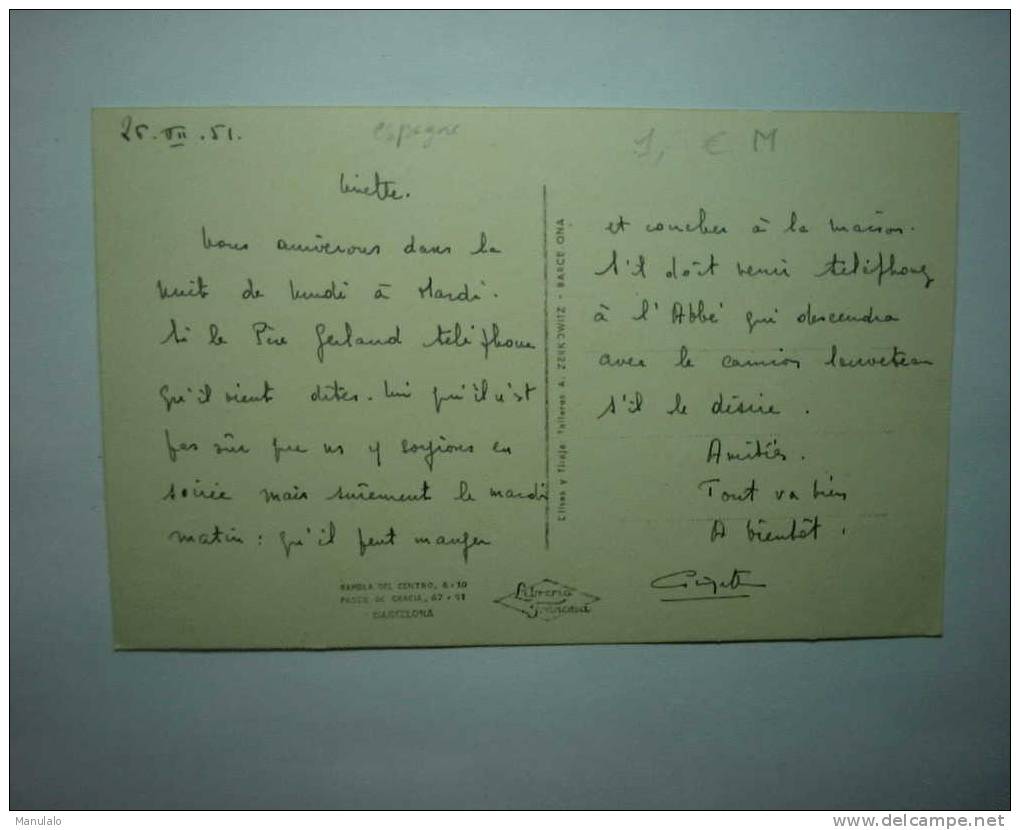 25.VII.51.
espagne
1, € M
Ninette.
Nous arriverons dans la
nuit de lundi à Mardi.
Si le Père Gerland téléphone
qu'il vient dites-lui qu'il n'est
pas sûr que ns y soyions en
soirée mais sûrement le mardi
matin : qu'il peut manger
et coucher à la maison.
S'il doit venir téléphonez
à l'Abbé qui descendra
avec le camion louveteau
s'il le désire.
Amitiés.
Tout va bien
A bientôt.
Clises y Tiraje Talleres A. ZERKOWITZ - BARCELONA
RAMBLA DEL CENTRO, 8-10
PASEO DE GRACIA, 67-91
BARCELONA
Libreria
Francesa
Manulalo
delcampe.net